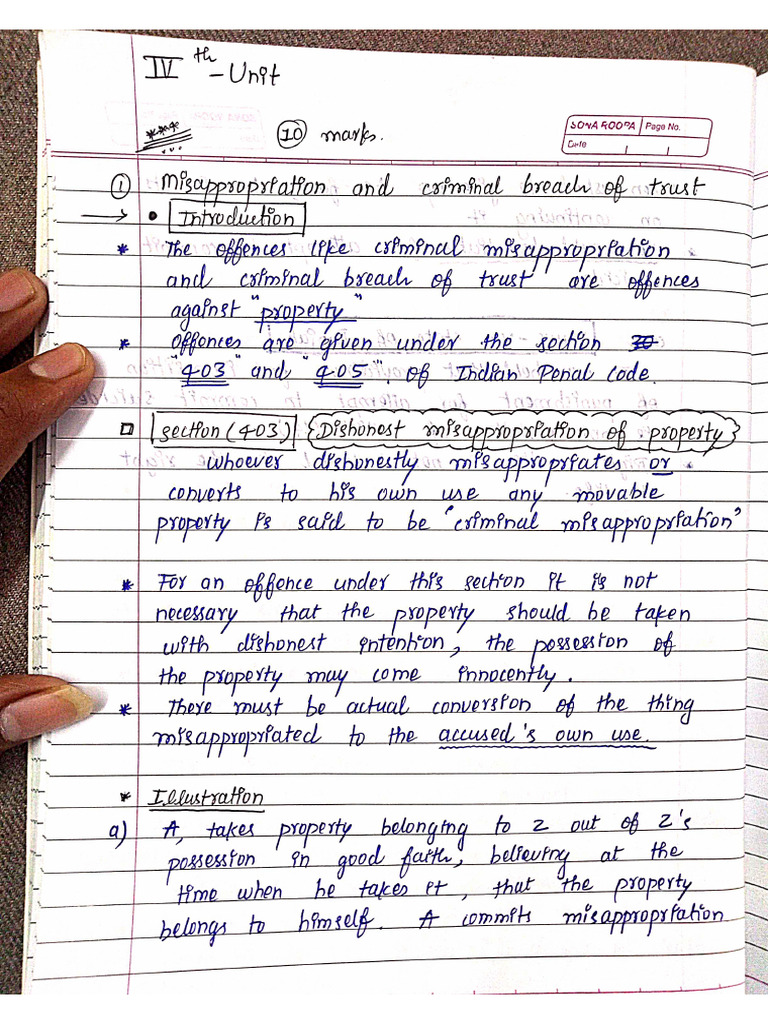 IVth - Unit
*** 10 marks.
SONA ROOPA Page No.
Date
① Misappropriation and criminal breach of trust
→ • Introduction
* The offences like criminal misappropriation
and criminal breach of trust are offences
against "property"
* offences are given under the section
"403" and "405". of Indian Penal code.
□ section (403) {Dishonest misappropriation of property}
whoever dishonestly misappropriates or
converts to his own use any movable
property is said to be "criminal misappropriation"
* For an offence under this section it is not
necessary that the property should be taken
with dishonest intention, the possession of
the property may come innocently.
* There must be actual conversion of the thing
misappropriated to the accused's own use.
* Illustration
a) A, takes property belonging to Z out of Z's
possession in good faith, believing at the
time when he takes it, that the property
belongs to himself. A commits misappropriation